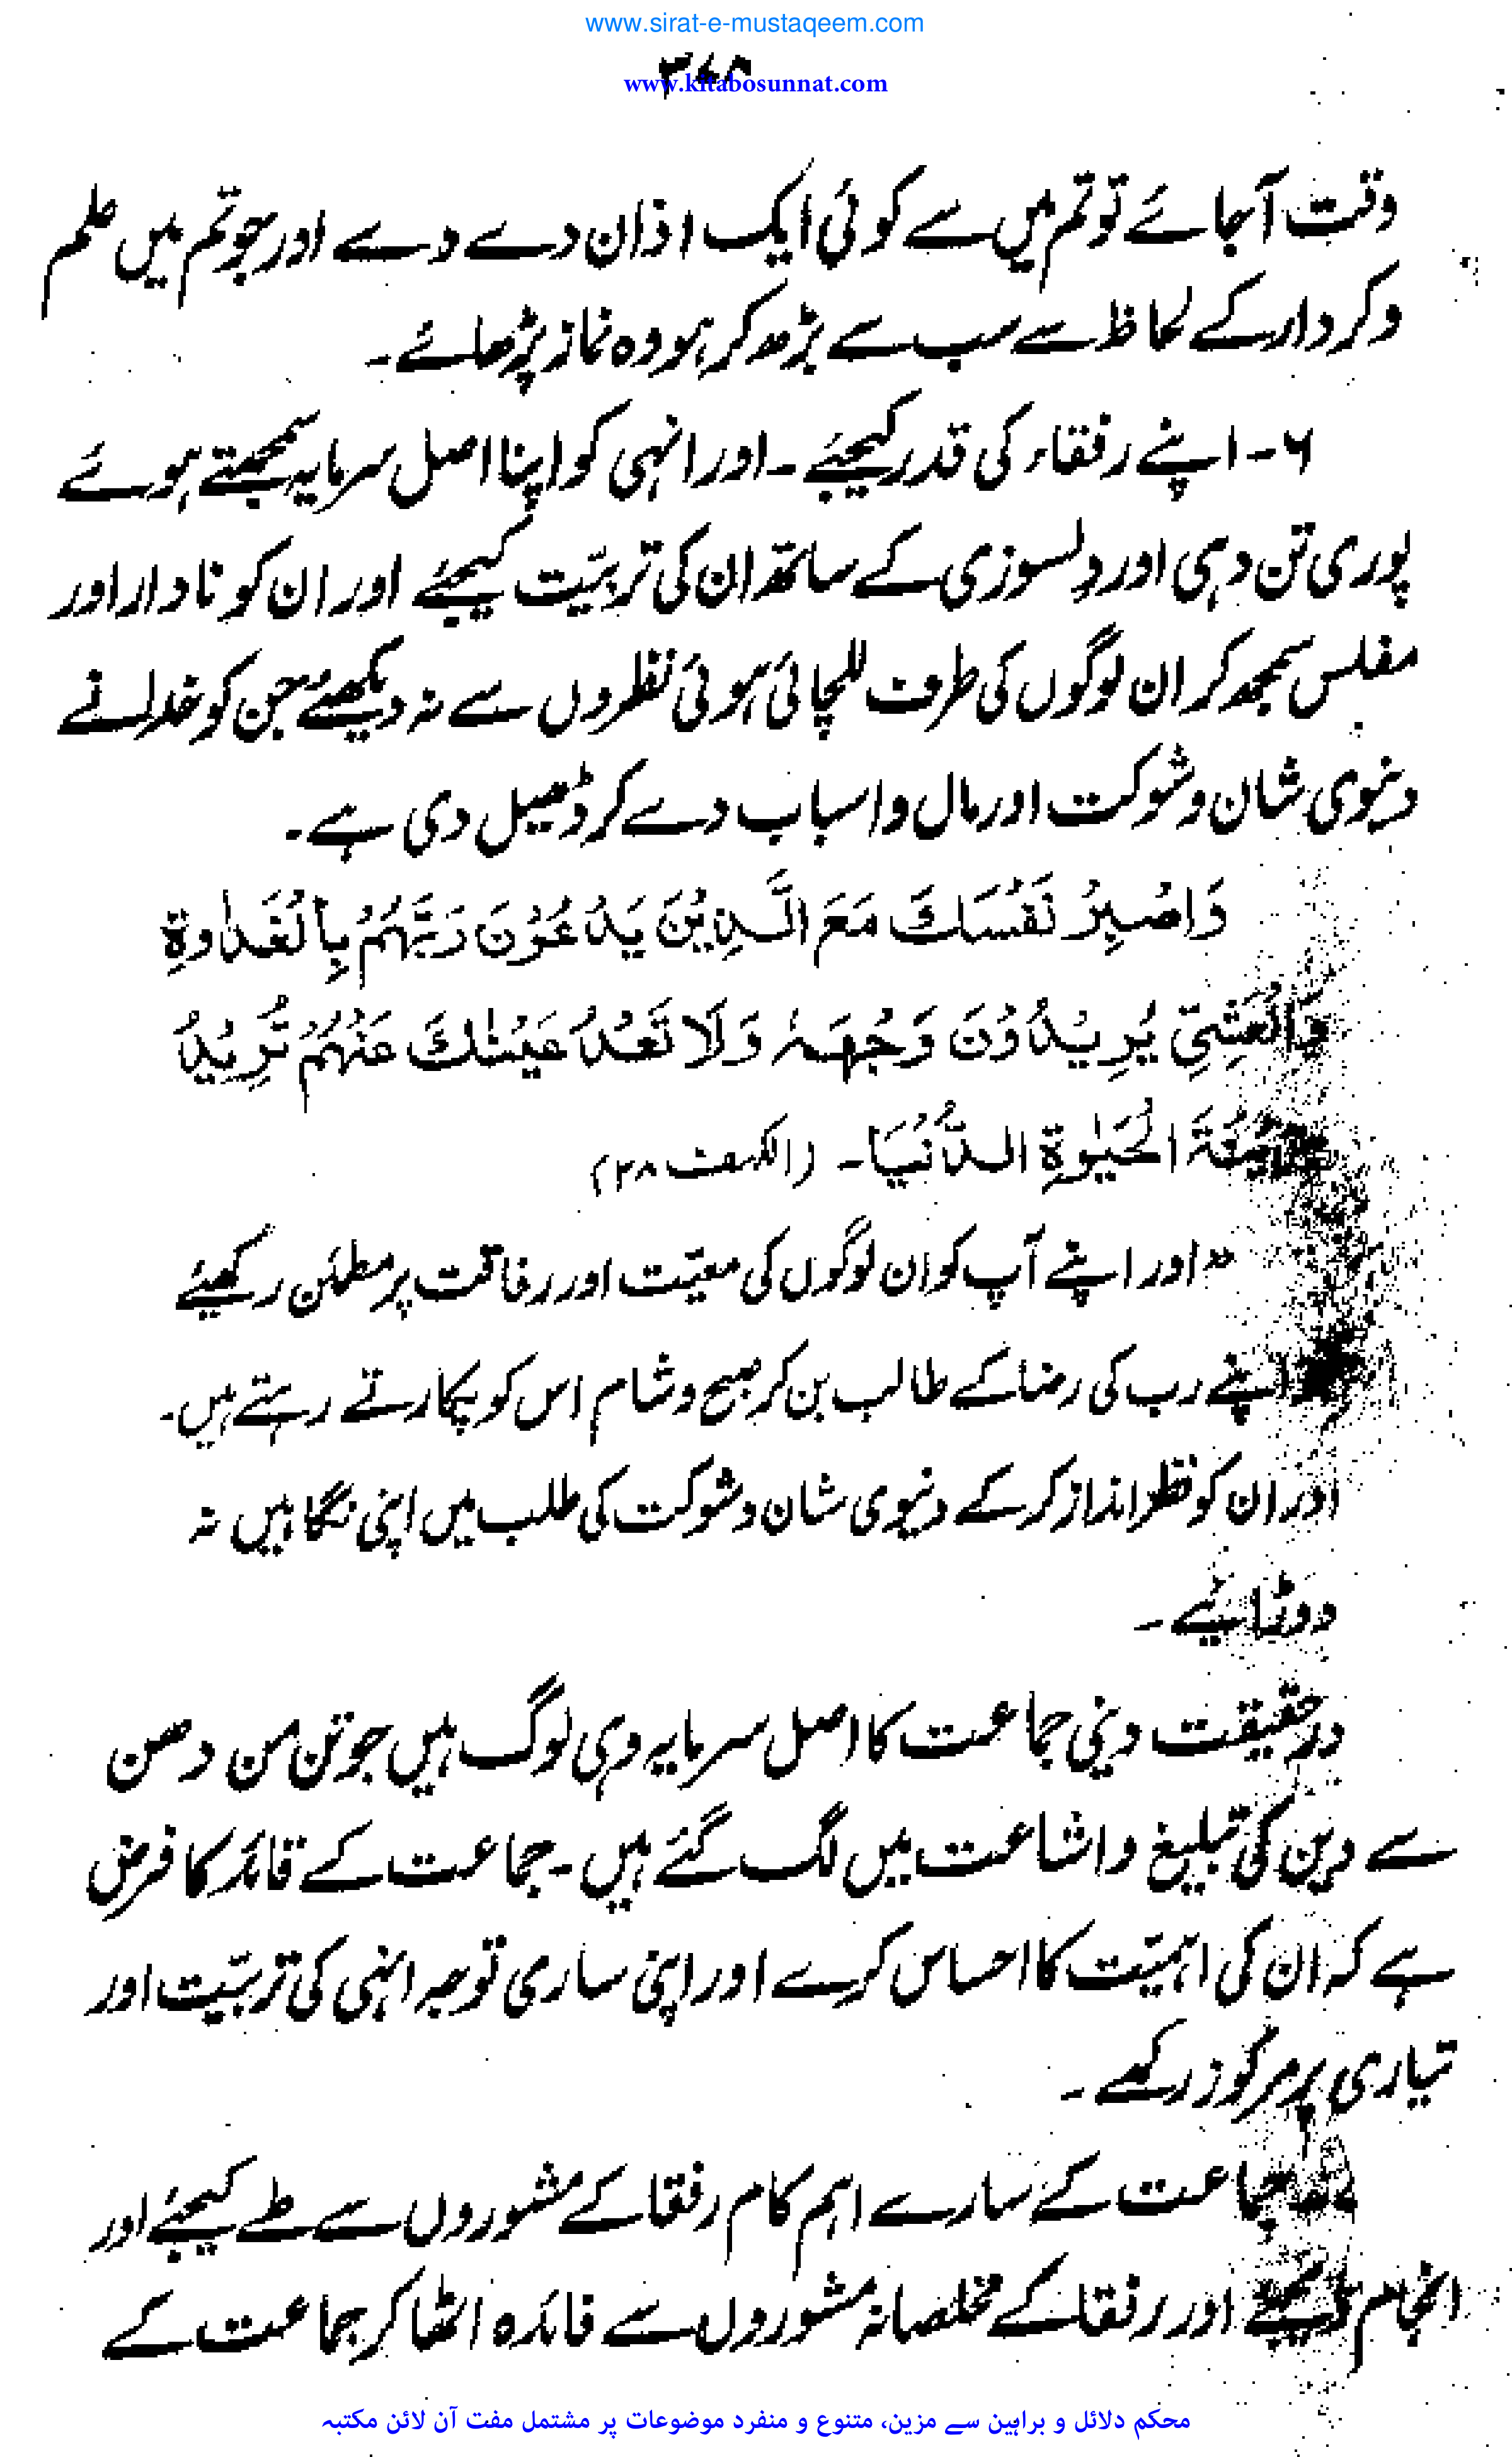 www.sirat-e-mustaqeem.com
۳۷۸
www.kitabosunnat.com
وقت آجائے تو تم میں سے کوئی ایک اذان دے دے اور جو تم میں علم
و کردار کے لحاظ سے سب سے بڑھ کر ہو وہ نماز پڑھائے۔
۶۔ اپنے رفقاء کی قدر کیجئے۔ اور انہی کو اپنا اصل سرمایہ سمجھتے ہوئے
پوری تن دہی اور دلسوزی کے ساتھ ان کی تربیّت کیجئے اور ان کو نادار اور
مفلس سمجھ کر ان لوگوں کی طرف للچائی ہوئی نظروں سے نہ دیکھئے جن کو خدا نے
دنیوی شان و شوکت اور مال و اسباب دے کر ڈھیل دی ہے۔
وَاصْبِرْ نَفْسَكَ مَعَ الَّذِيْنَ يَدْعُوْنَ رَبَّهُمْ بِالْغَدٰوةِ
وَالْعَشِيِّ يُرِيْدُوْنَ وَجْهَهٗ وَلَا تَعْدُ عَيْنٰكَ عَنْهُمْ تُرِيْدُ
زِيْنَةَ الْحَيٰوةِ الدُّنْيَا۔ (الکہف ۲۸)
”اور اپنے آپ کو ان لوگوں کی معیّت اور رفاقت پر مطمئن رکھیئے
اپنے رب کی رضا کے طالب بن کر صبح و شام اس کو پکارتے رہتے ہیں۔
اور ان کو نظر انداز کر کے دنیوی شان و شوکت کی طلب میں اپنی نگاہیں نہ
دوڑائیے۔
درحقیقت دینی جماعت کا اصل سرمایہ وہی لوگ ہیں جو تن من دھن
سے دین کی تبلیغ و اشاعت میں لگ گئے ہیں۔ جماعت کے قائد کا فرض
ہے کہ ان کی اہمیّت کا احساس کرے اور اپنی ساری توجہ انہی کی تربیّت اور
تیاری پر مرکوز رکھے۔
جماعت کے سارے اہم کام رفقا کے مشوروں سے طے کیجئے اور
انجام دیجئے اور رفقا کے مخلصانہ مشوروں سے فائدہ اٹھا کر جماعت کے
محکم دلائل و براہین سے مزین، متنوع و منفرد موضوعات پر مشتمل مفت آن لائن مکتبہ